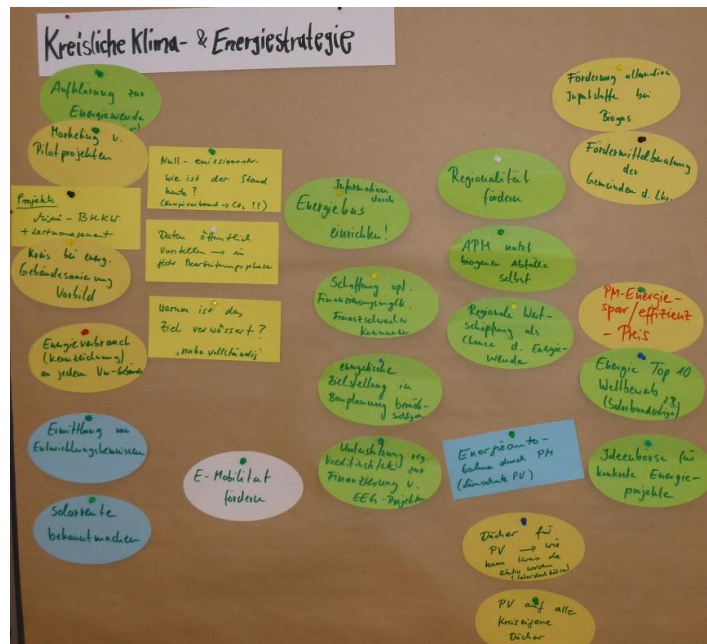 Kreisliche Klima- & Energiestrategie
Aufklärung zur
Energiewende
Marketing v.
Pilotprojekten
Projekte
Mini-BHKW
+ Lastmanagement
Kreis bei energ.
Gebäudesanierung
Vorbild
Energieverbrauch
(Kennzeichnung)
an jedem Vw-Gebäude
Ermittlung von
Entwicklungshemnissen
Solarrente
bekanntmachen
Null-emissionsstr.
wie ist der Stand
heute?
(Energieverbrauch → CO2 ??)
Daten öffentlich
vorstellen → in
jeder Bearbeitungsphase
warum ist das
Ziel verwässert?
"nahe vollständig"
E-Mobilität
fördern
Information durch
Energiebus
einrichten!
Schaffung opt.
Finanzierungsmöglk.
Finanzschwacher
Kommunen
energetische
Zielstellung in
Bauplanung berück-
sichtigen
Unterstützung reg.
Kreditinstitute zur
Finanzierung v.
EEG-Projekten
Regionalität
fördern
APM nutzt
biogenen Abfälle
selbst
Regionale Wert-
schöpfung als
Chance d. Energie-
wende
Energieauto-
bahn durch PM
(PV)
Dächer für
PV → wie
kann Kreis da
aktiv werden
(Solardachbörse)
PV auf alle
Kreiseigene
Dächer
Förderung alternativer
Inputstoffe bei
Biogas
Fördermittelberatung
der
Gemeinden d. Lkr.
PM-Energie-
spar/effizienz
- Preis
Energie Top 10
Wettbewerb
(Solarbundesliga)
z.B.
Ideenbörse für
konkrete Energie-
projekte